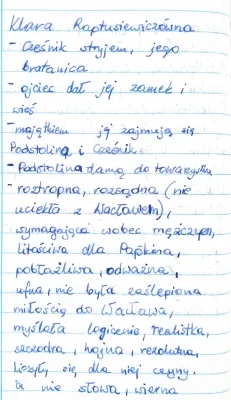 Klara Raptusiewiczówna
- Cześnik stryjem, jego
bratanica
- ojciec dał jej zamek i
wieś
- majątkiem jej zajmują się
Podstolina i Cześnik
- Podstolina damą do towarzystwa
- roztropna, rozsądna (nie
uciekła z Wacławem),
wymagająca wobec mężczyzn,
litościwa dla Papkina,
pobłażliwa, odważna,
ufna, nie była zaślepiona
miłością do Wacława,
myślała logicznie, realistka,
szczodra, hojna, rezolutna,
liczyły się dla niej czyny
a nie słowa, wierna